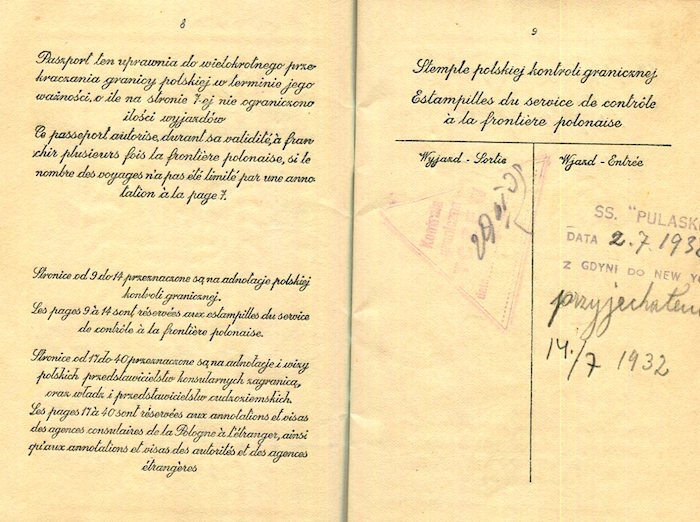 8
Paszport ten uprawnia do wielokrotnego prze-
kraczania granicy polskiej w terminie jego
ważności, o ile na stronie 7-ej nie ograniczono
ilości wyjazdów
Ce passeport autorise, durant sa validité, à fran-
chir plusieurs fois la frontière polonaise, si le
nombre des voyages n'a pas été limité par une anno-
tation à la page 7.
Stronice od 9 do 14 przeznaczone są na adnotacje polskiej
kontroli granicznej.
Les pages 9 à 14 sont réservées aux estampilles du service
de contrôle à la frontière polonaise.
Stronice od 17 do 40 przeznaczone są na adnotacje i wizy
polskich przedstawicielstw konsularnych zagranicą,
oraz władz i przedstawicielstw cudzoziemskich.
Les pages 17 à 40 sont réservées aux annotations et visas
des agences consulaires de la Pologne à l'étranger, ainsi
qu'aux annotations et visas des autorités et des agences
étrangères
9
Stemple polskiej kontroli granicznej
Estampilles du service de contrôle
à la frontière polonaise
Wyjazd - Sortie
Wjazd - Entrée
Kontrola
SS. "PULASKI
DATA 2.7.1932
Z GDYNI DO NEW YO
przyjechałem
14./7 1932